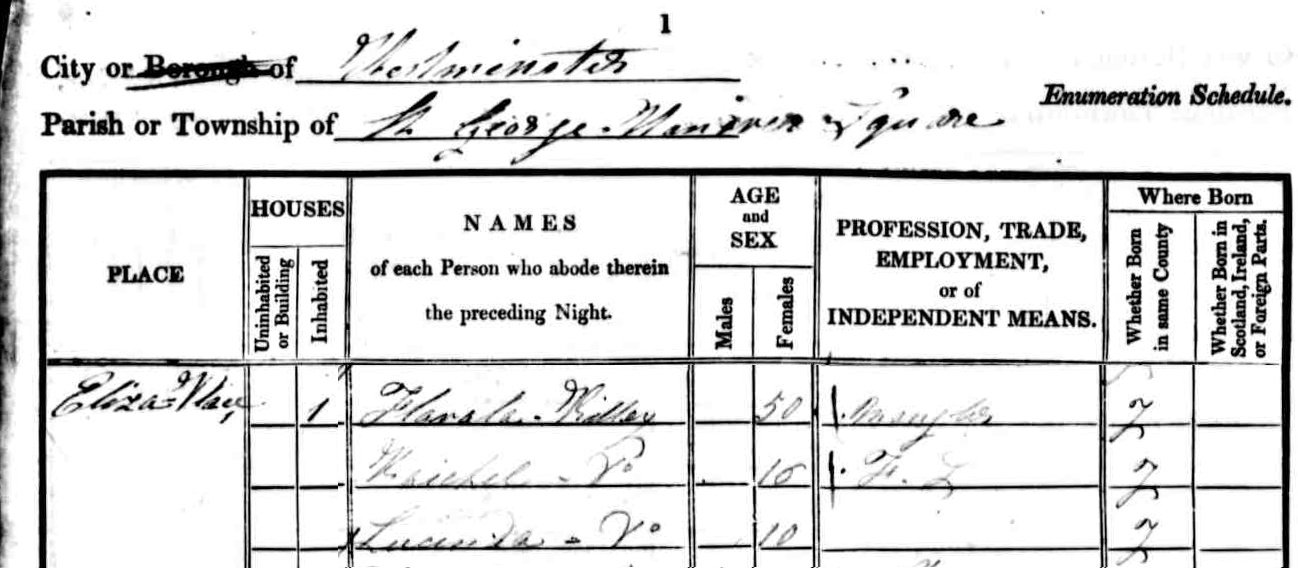 1
City or Borough of Westminster
Enumeration Schedule.
Parish or Township of St George Hanover Square
PLACE
HOUSES
Uninhabited or Building
Inhabited
NAMES
of each Person who abode therein
the preceding Night.
AGE
and
SEX
Males
Females
PROFESSION, TRADE,
EMPLOYMENT,
or of
INDEPENDENT MEANS.
Where Born
Whether Born in same County
Whether Born in Scotland, Ireland, or Foreign Parts.
Eliza Place 1 50
Do 15 F. S
Lucinda Do 10